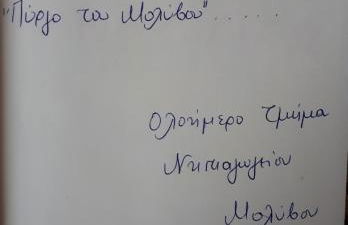 "Πύργο του Μολύβου".....
Ολοήμερο Τμήμα
Νηπιαγωγείου
Μολύβου